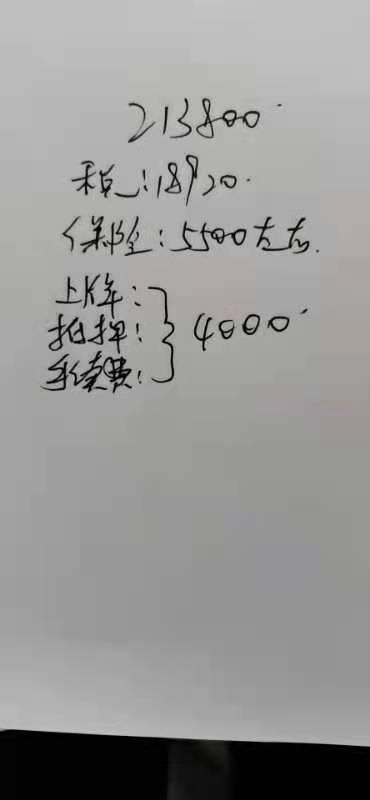 213800
税:18920.
保险:5500左右.
上牌:
抵押: } 4000
手续费: